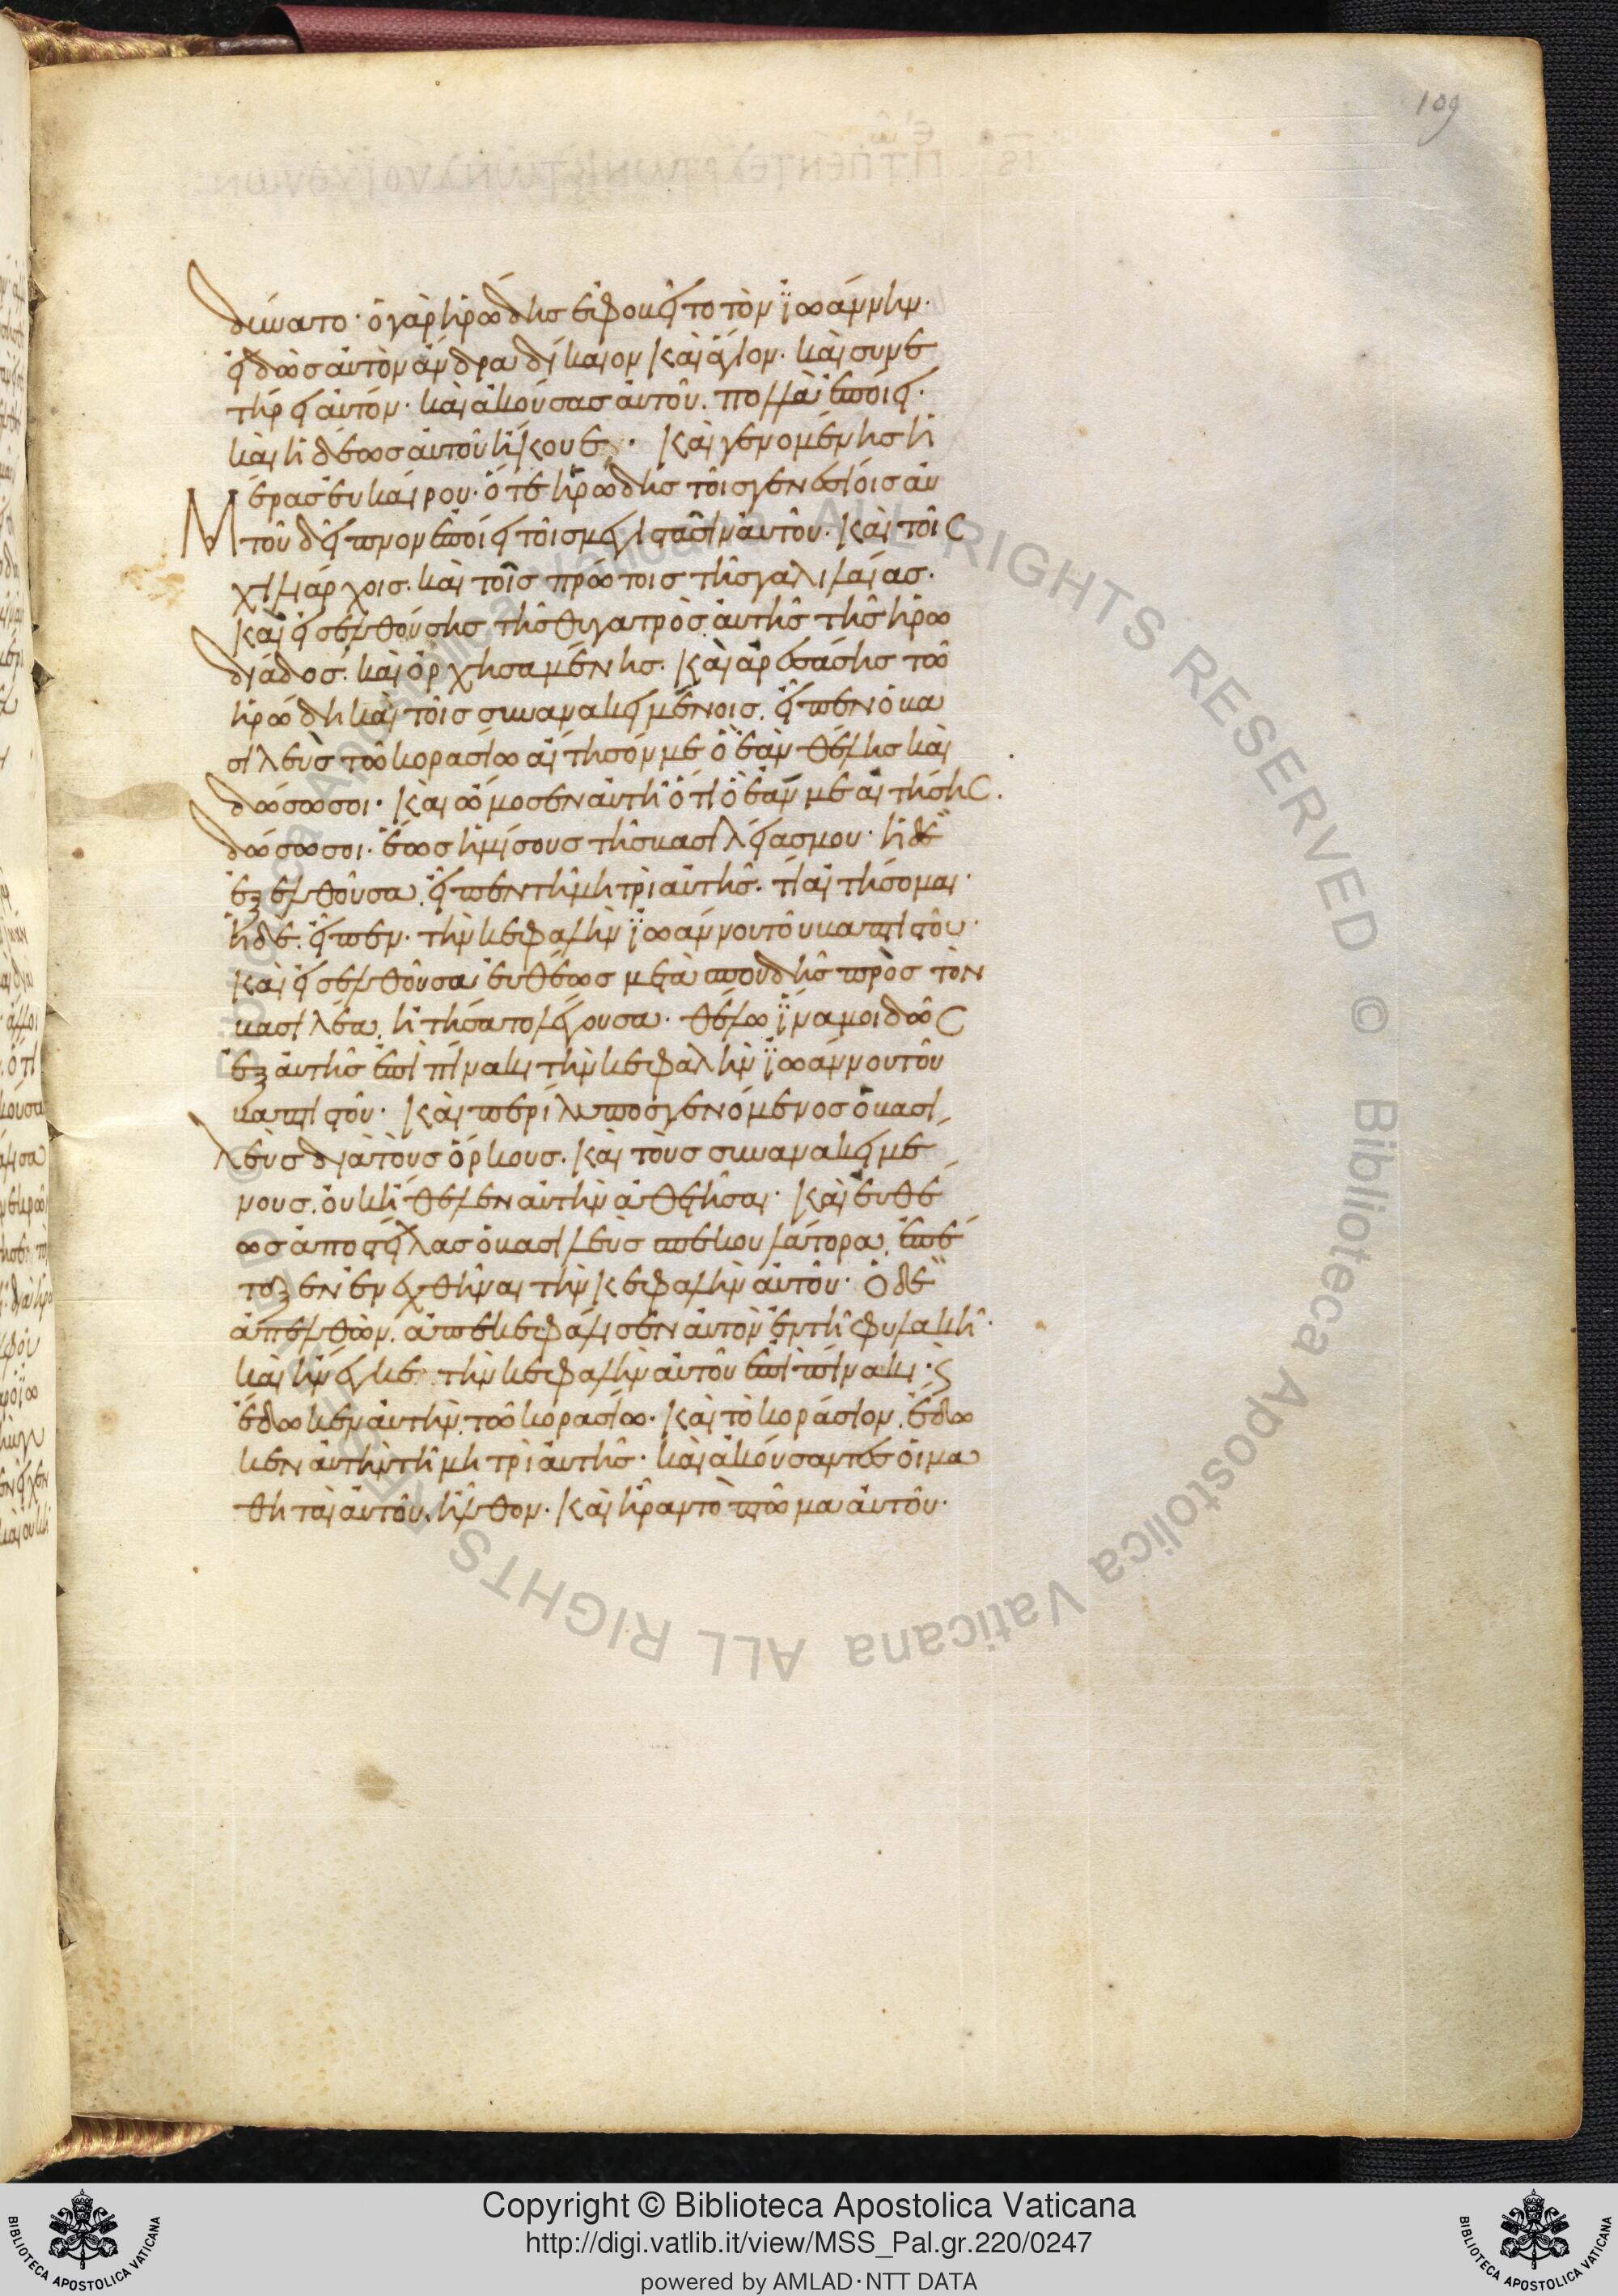 109
δύνατο· ὁ γὰρ ἡρώδης ἐφοβεῖτο τὸν ϊωάννην·
εἰδὼς αὐτὸν ἄνδρα δίκαιον καὶ ἅγιον· καὶ συνε
τήρει αὐτόν· καὶ ἀκούσας αὐτοῦ. πολλὰ ἐποίει·
καὶ ἡδέως αὐτοῦ ἤκουε· καὶ γενομένης ἡ
μέρας εὐκαίρου· ὅτε ἡρώδης τοῖς γενεσίοις αὐ
τοῦ δεῖπνον ἐποίει τοῖς μεγιστᾶσιν αὐτοῦ· καὶ τοῖς
χιλιάρχοις. καὶ τοῖς πρώτοις τῆς γαλιλαίας·
καὶ εἰσελθούσης τῆς θυγατρὸς αὐτῆς τῆς ἡρω
διάδος. καὶ ὀρχησαμένης. καὶ ἀρεσάσης τῶ
ἡρώδη καὶ τοῖς συνανακειμένοις. εἶπεν ὁ βα
σιλεὺς τῶ κορασίω αἴτησόν με ὃ ἐὰν θέλης καὶ
δώσω σοι· καὶ ὤμοσεν αὐτῆ ὅτι ὃ ἐάν με αἰτήσης.
δώσω σοι· ἕως ἡμίσους τῆς βασιλείας μου· ἡ δὲ
ἐξελθοῦσα. εἶπεν τῆ μητρὶ αὐτῆς. τί αἰτήσομαι·
ἡ δὲ. εἶπεν. τὴν κεφαλὴν ϊωάννου τοῦ βαπτιστοῦ·
καὶ εἰσελθοῦσα εὐθέως μετὰ σπουδῆς πρὸς τὸν
βασιλέα. ἠτήσατο λέγουσα. θέλω ϊνα μοι δῶς
ἐξ αὐτῆς ἐπὶ πίνακι τὴν κεφαλὴν ϊωάννου τοῦ
βαπτιστοῦ· καὶ περίλυπος γενόμενος ὁ βασι
λεὺς διὰ τοὺς ὅρκους. καὶ τοὺς συνανακειμέ
νους. οὐκ ἤθελεν αὐτὴν ἀθετῆσαι· καὶ εὐθέ
ως ἀποστείλας ὁ βασιλεὺς σπεκουλάτορα. ἐπέ
ταξεν ἐνεχθῆναι τὴν κεφαλὴν αὐτοῦ· ὁ δὲ
ἀπελθὼν. ἀπεκεφάλισεν αὐτὸν ἐν τῆ φυλακῆ·
καὶ ἤνεγκε τὴν κεφαλὴν αὐτοῦ ἐπὶ πίνακι· ϛ
ἔδωκεν αὐτὴν τῶ κορασίω· καὶ τὸ κοράσιον. ἔδω
κεν αὐτὴν τῆ μητρὶ αὐτῆς· καὶ ἀκούσαντες οἱ μα
θηταὶ αὐτοῦ. ἦλθον· καὶ ἦραν τὸ πτῶμα αὐτοῦ·
Copyright © Biblioteca Apostolica Vaticana
http://digi.vatlib.it/view/MSS_Pal.gr.220/0247
powered by AMLAD·NTT DATA
BIBLIOTECA APOSTOLICA VATICANA
BIBLIOTECA APOSTOLICA VATICANA
© Biblioteca Apostolica Vaticana ALL RIGHTS RESERVED © Biblioteca Apostolica Vaticana ALL RIGHTS RESERVED